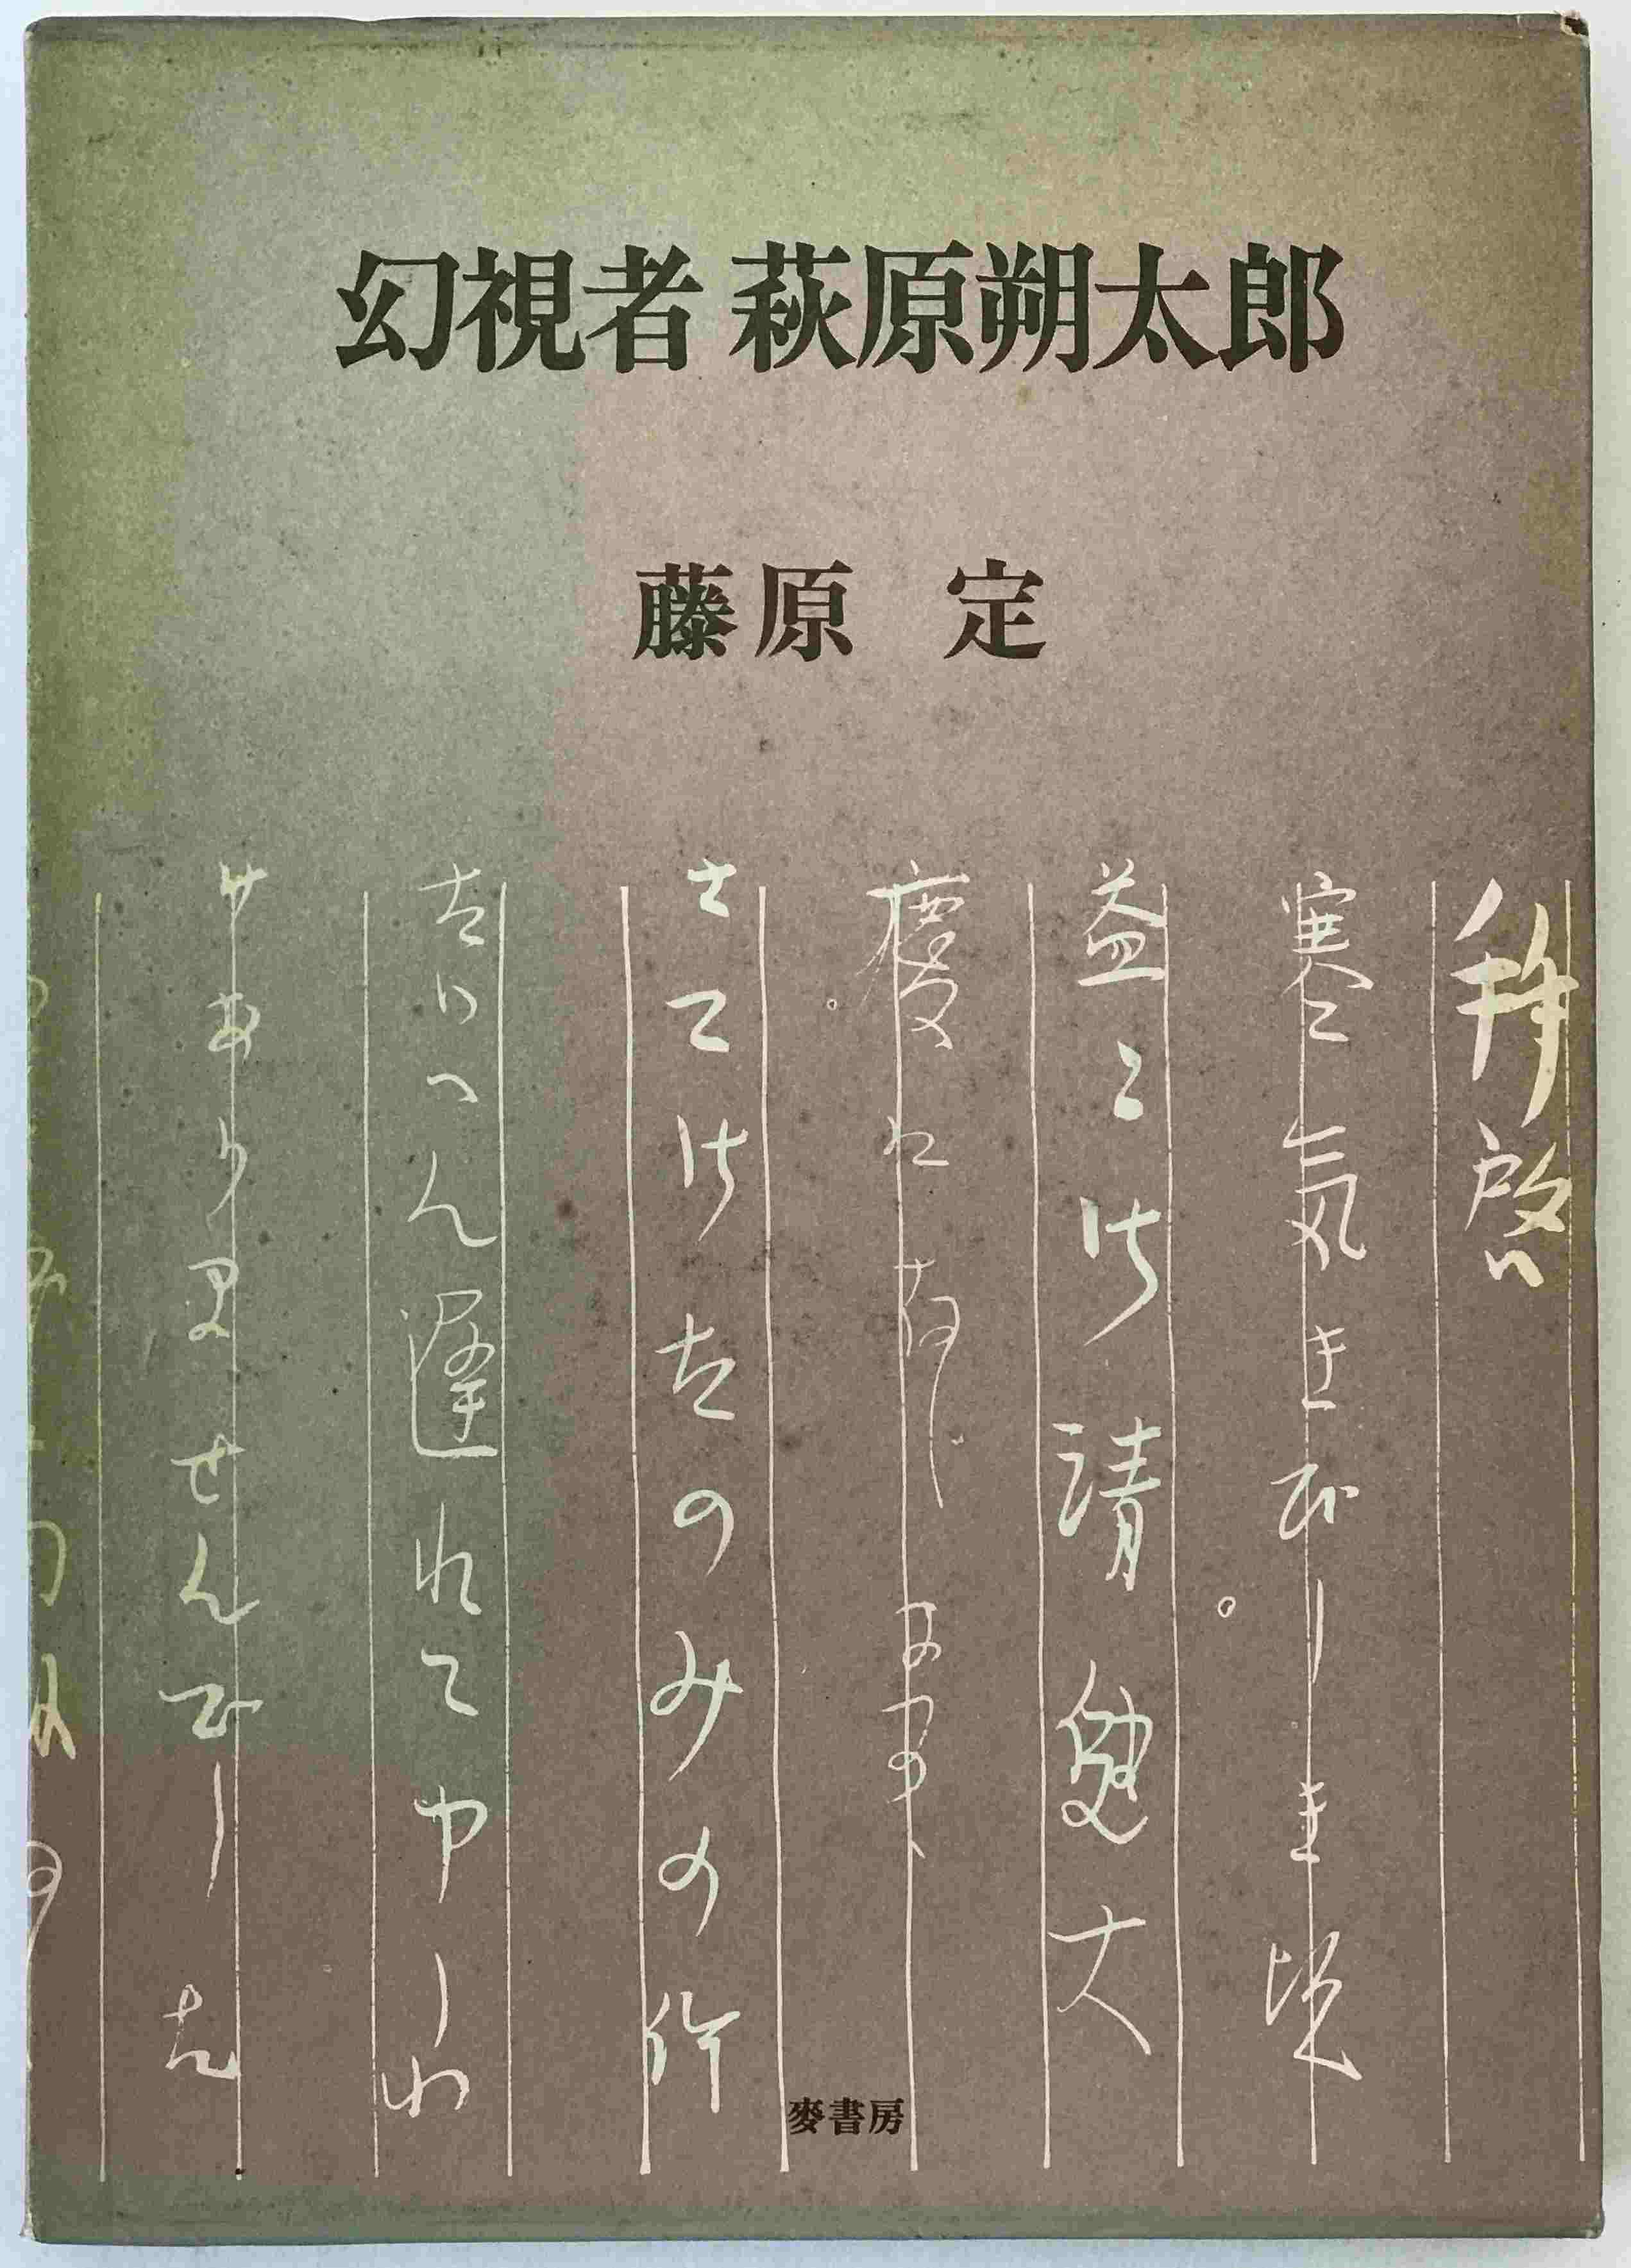 幻視者 萩原朔太郎
藤原 定
拝啓
寒気きびしき
益々御請勉大
慶に存じます
さて御たのみの件
たいへん遅れて申しわ
けありませんでした
麥書房